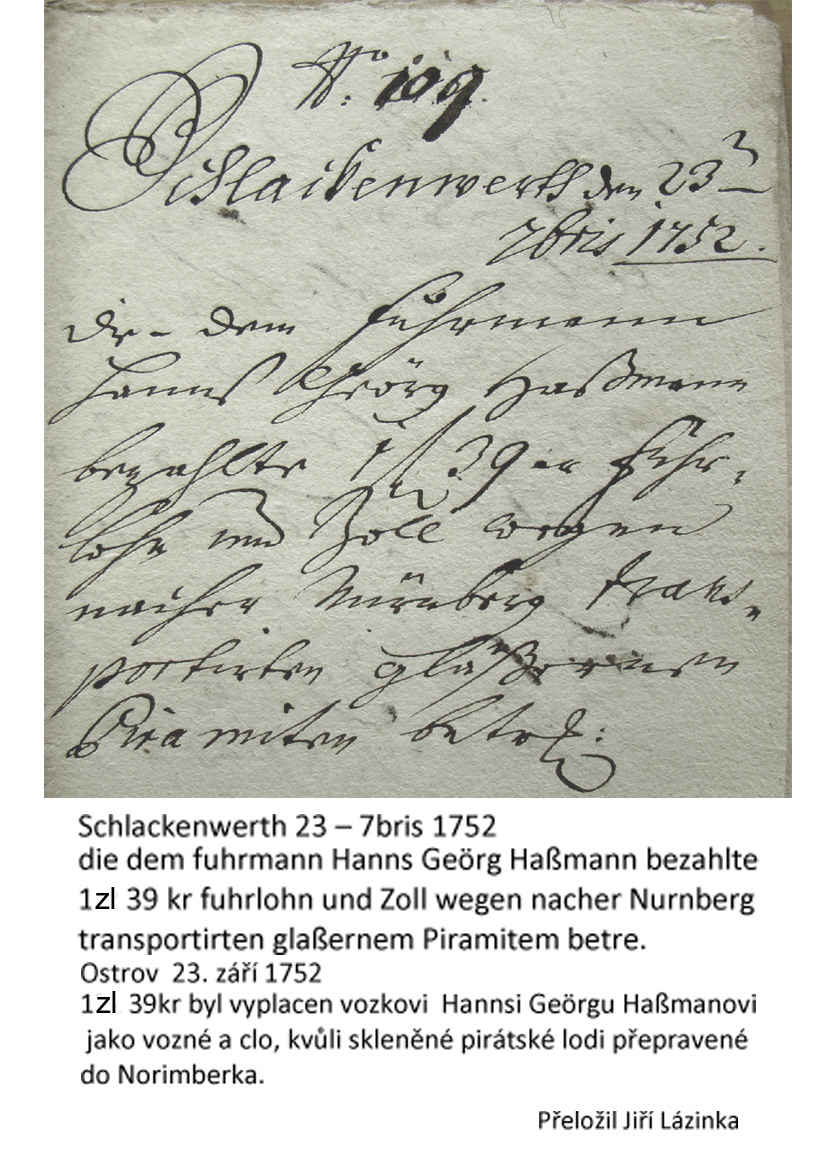 No. 109.
Schlackenwerth den 23
7bris 1752.
die dem Fuhrmann
Hannß Geörg Haßmann
bezahlte 1 f 39 kr Fuhr-
lohn und Zoll wegen
nacher Nürnberg trans-
portirten gläßernen
Piramiten betr:
Schlackenwerth 23 – 7bris 1752
die dem fuhrmann Hanns Geörg Haßmann bezahlte
1zl 39 kr fuhrlohn und Zoll wegen nacher Nurnberg
transportirten glaßernem Piramitem betre.
Ostrov 23. září 1752
1zl 39kr byl vyplacen vozkovi Hannsi Geörgu Haßmanovi
jako vozné a clo, kvůli skleněné pirátské lodi přepravené
do Norimberka.
Přeložil Jiří Lázinka